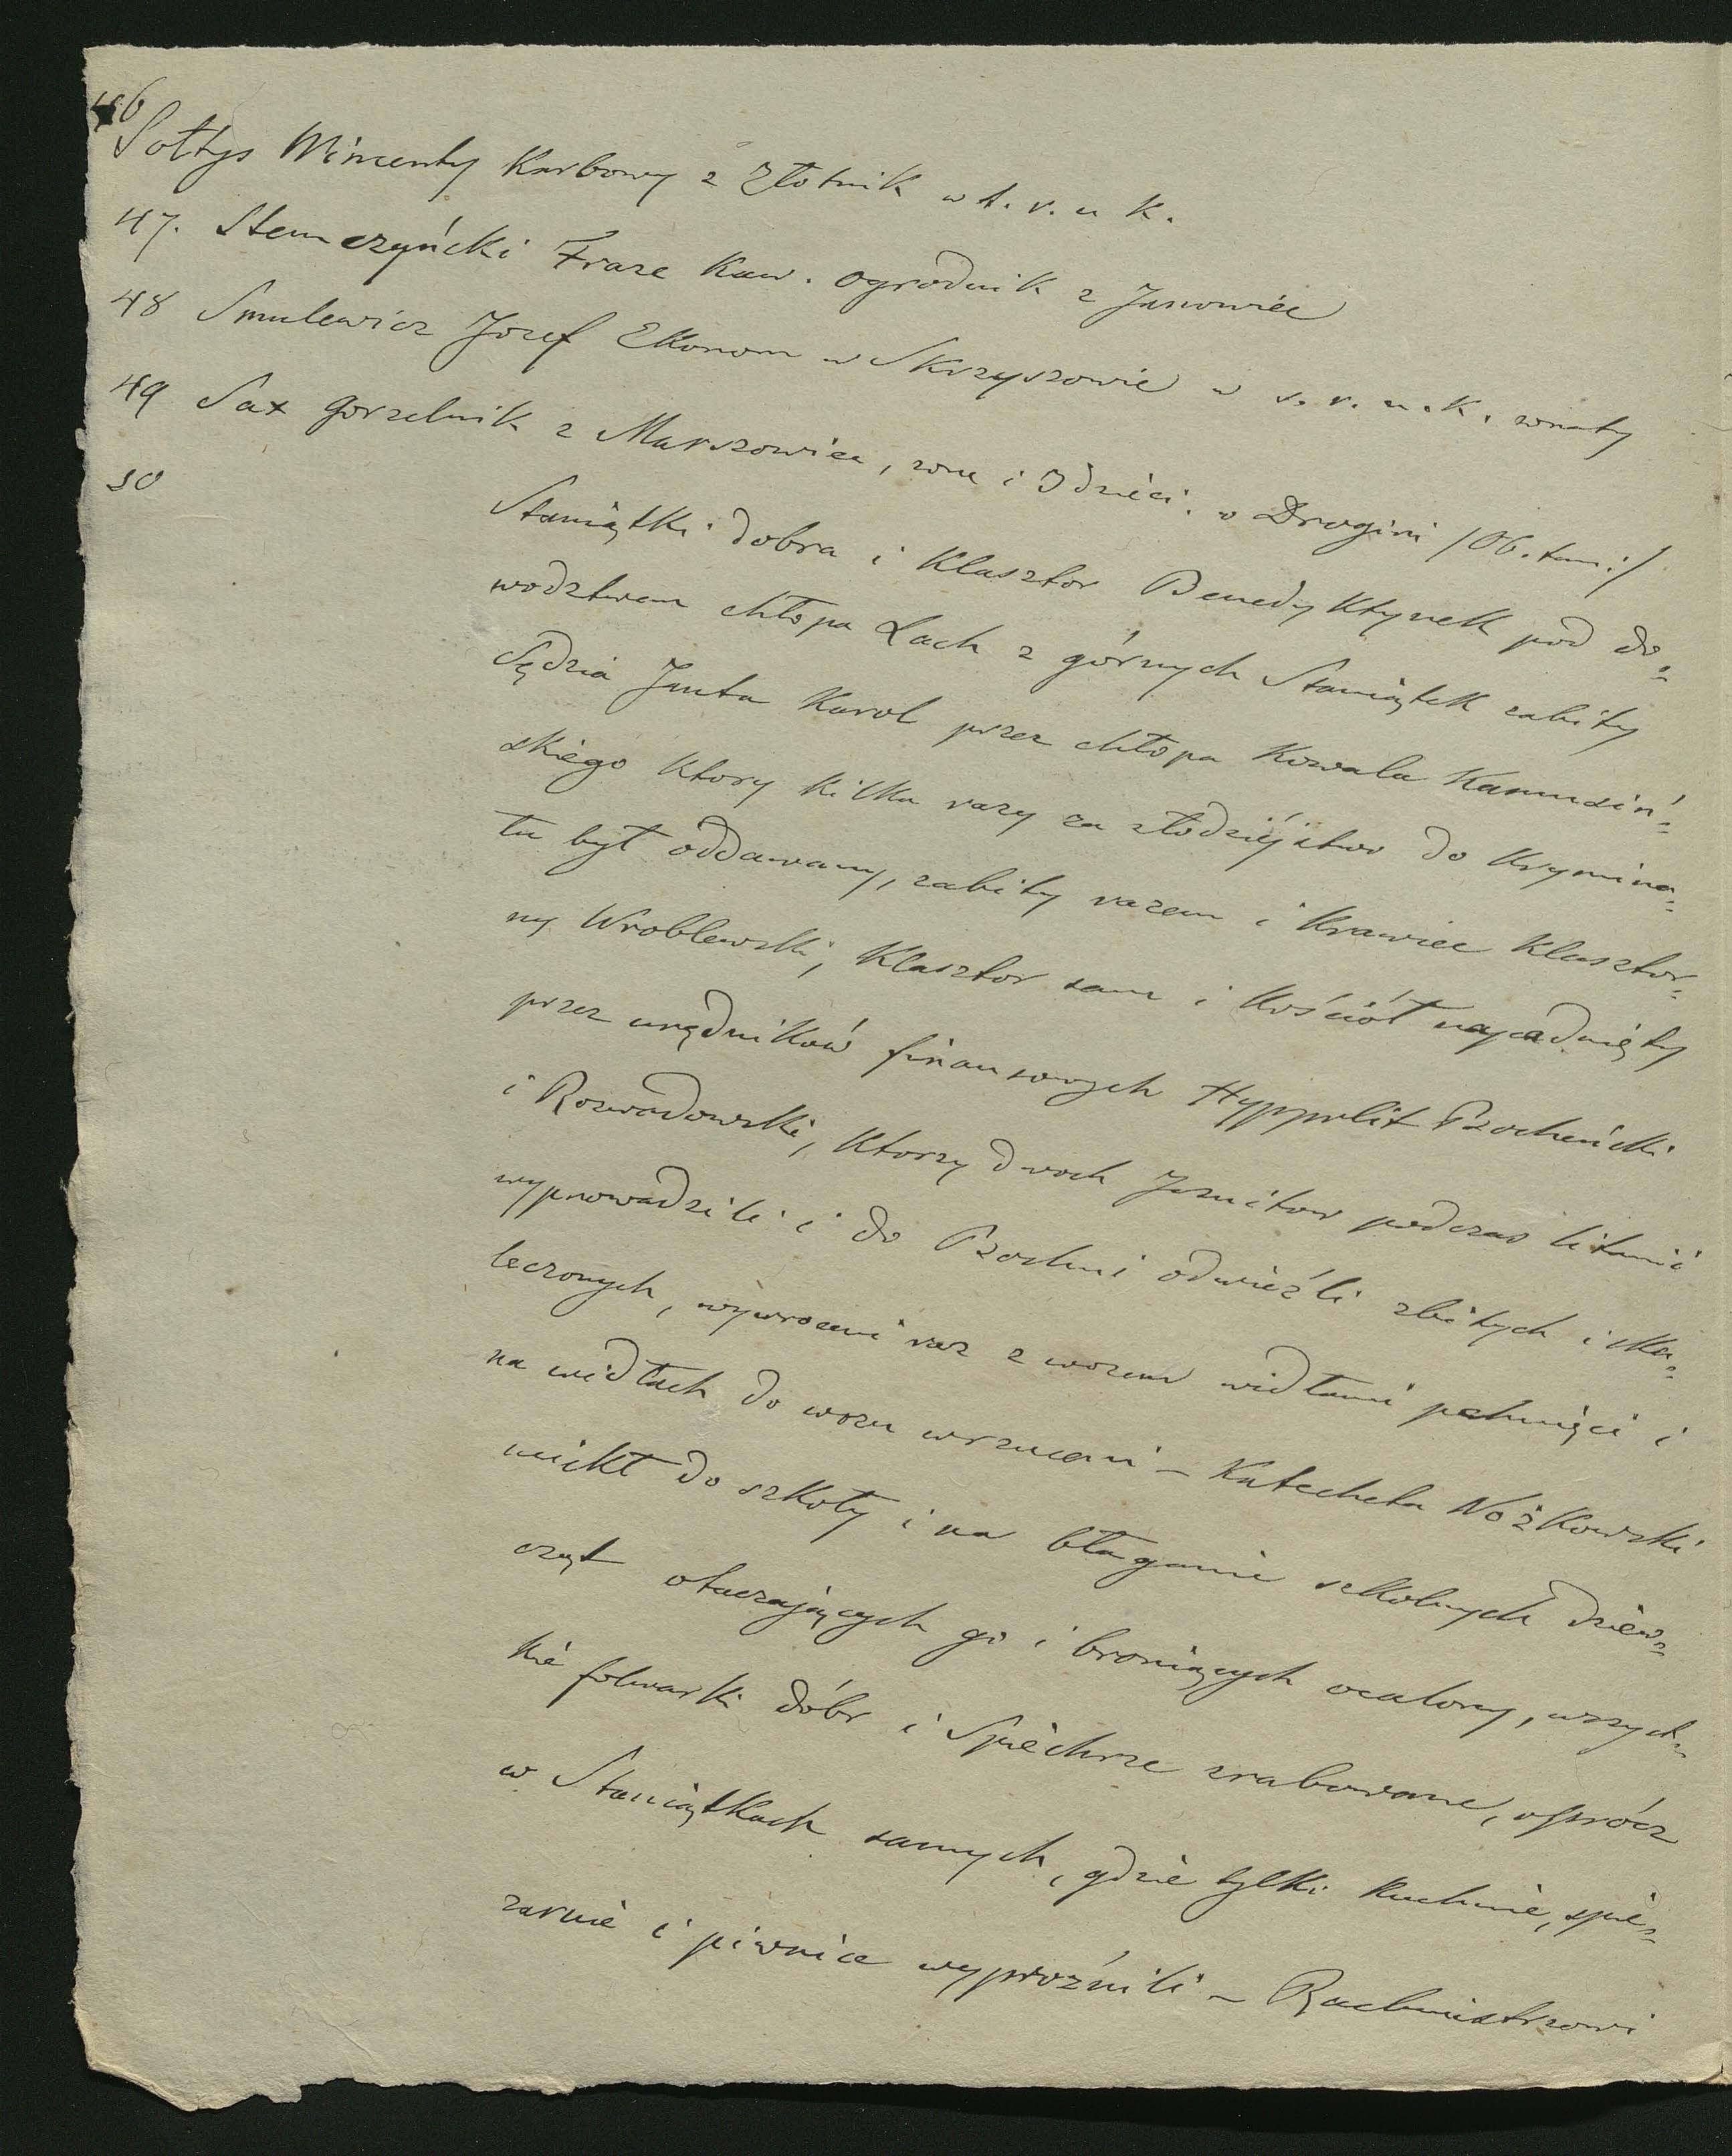 46
Sołtys Wincenty Karbowy z Złotnik w t. r. u K.
47. Stemczyńcki Franc Kaw. ogrodnik z Janowiec
48 Smulewicz Jozef Ekonom w Skrzyszowie w s. r. u. K. wraty
49 Sax gorzelnik z Marszowiec, zona i 3 dzieci. v Drogini /Ob. tam:/
50
Staniątki dobra i Klasztor Benedyktynek pod do=
wodztwem chłopa Lach z górnych Staniątek zabity
Sędzia Janta Karol przez chłopa Kowala Kamusiń=
skiego ktory kilka razy za złodziejstwo do krymina=
tu był oddawany, zabity razem i Krawiec Klasztor=
ny Wroblewski, Klasztor sam i Kościół napadnięty
przez urzędników finansowych Hyppolit Bochenicki
i Rozwadowski, ktorzy dwoch Jezuitow podczas litanii
wyprowadzili i do Bochni odwieźli zbitych i ska=
leczonych, wywroceni raz z wozem widłami pchnięci i
na widłach do wozu wrzuceni – Katecheta Nożkowski
uciekł do szkoły i na błaganie szkolnych dziew=
cząt otaczających go i broniących ocalony, wszyst=
kie folwarki dóbr i Spichrze zrabowane, oprócz
w Staniątkach samych, gdzie tylko kuchnie, spi=
zarnie i piwnice wyprożnili – Rachmistrzowi